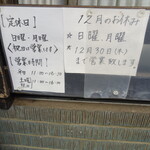 [定休日]
日曜、月曜
(祝日は営業します)
[営業時間]
平日 11:00~
土曜
12月のお休み
日曜、月曜
12月30日(木)
まで営業致します。